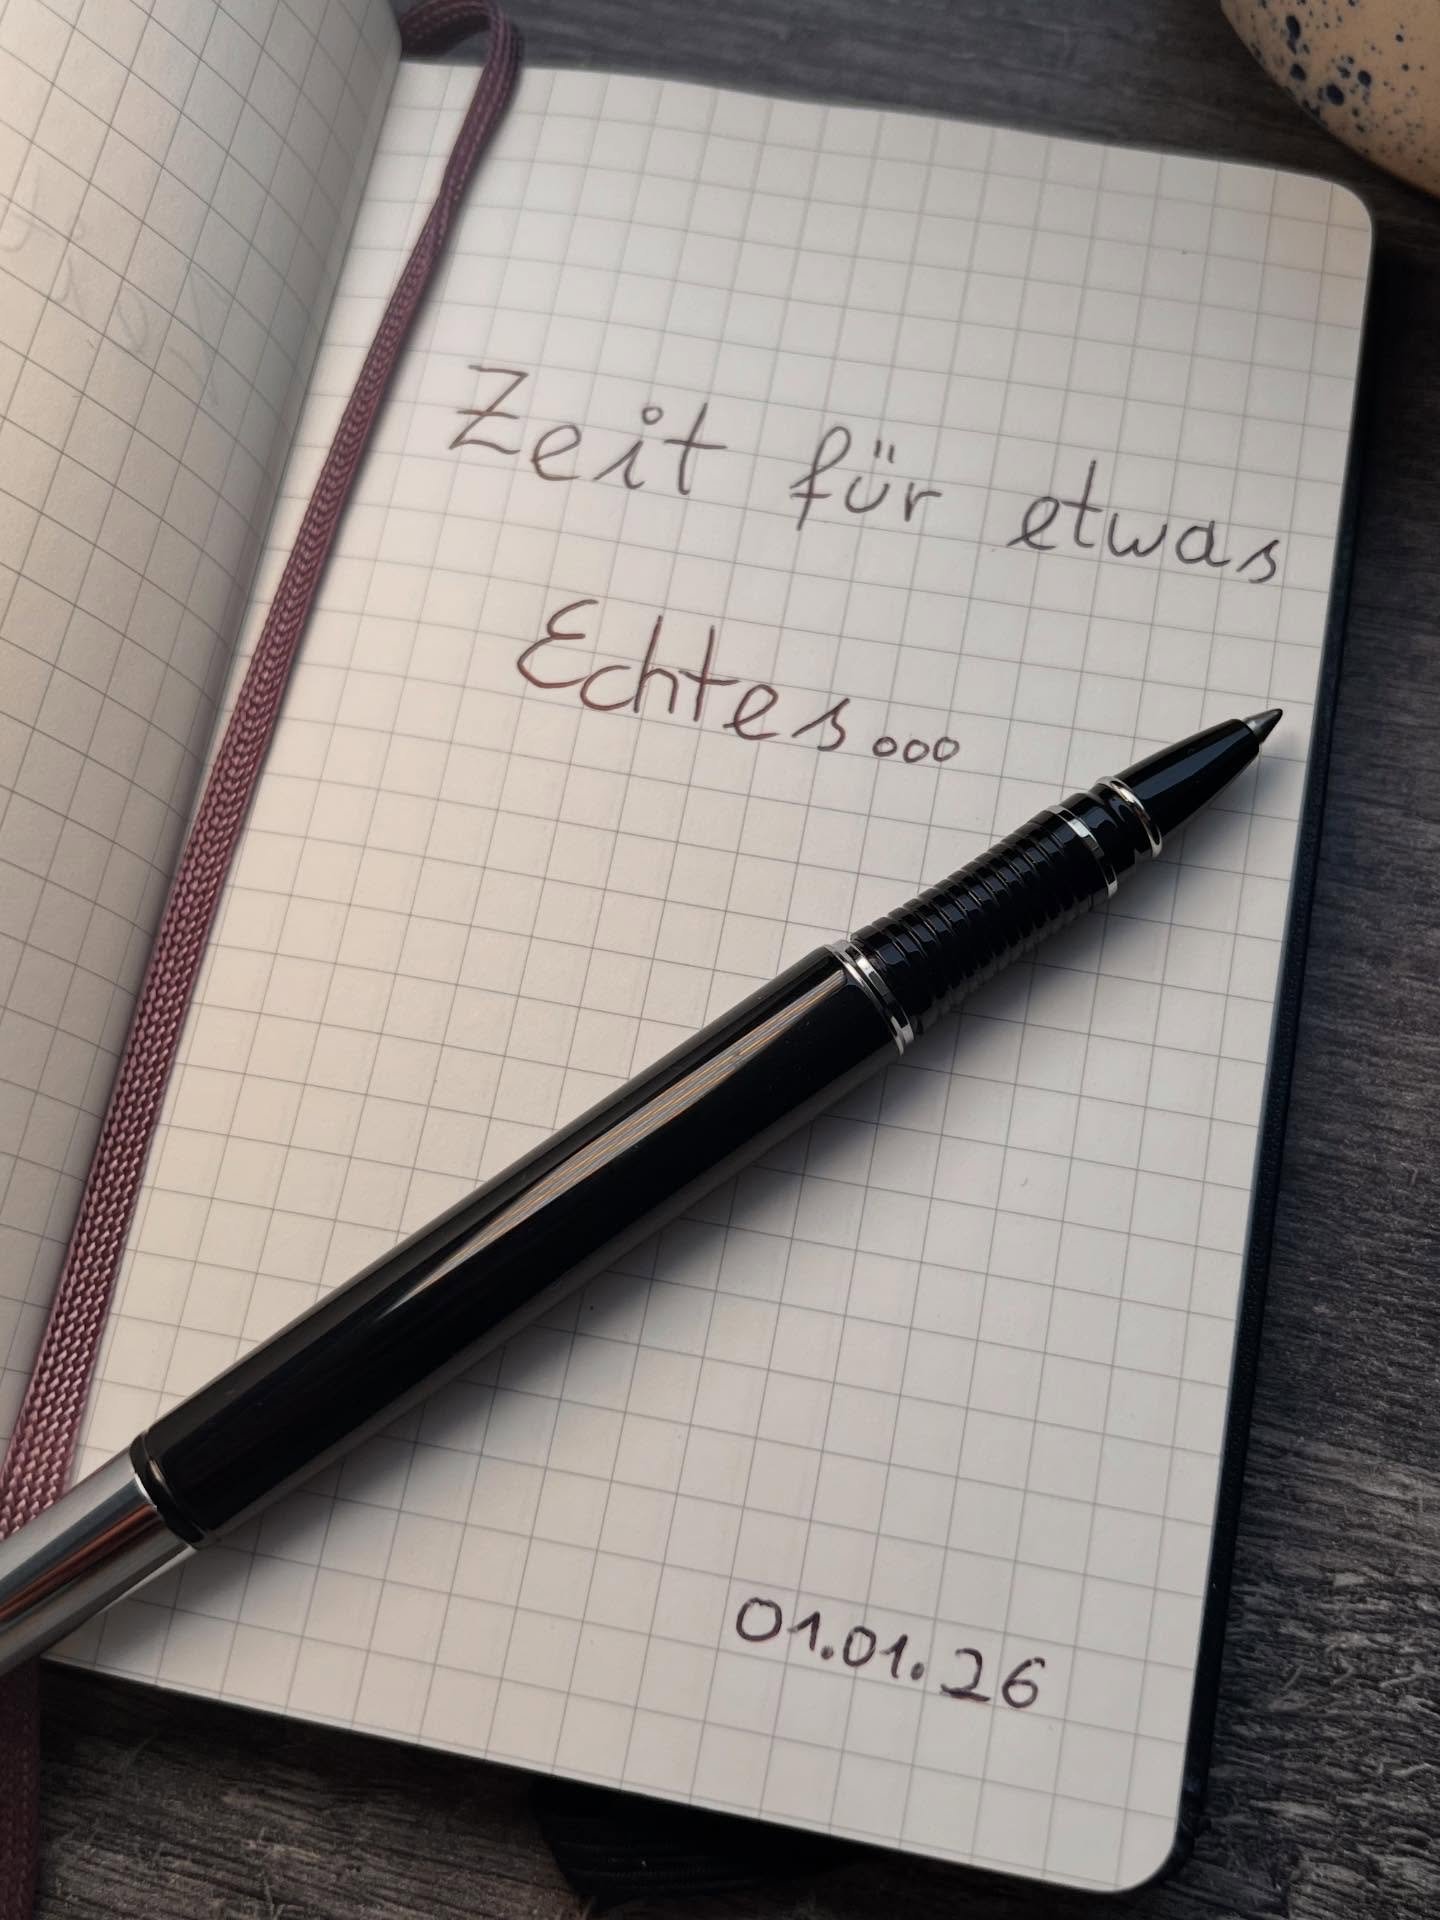 Zeit für etwas
Echtes...
01.01.26